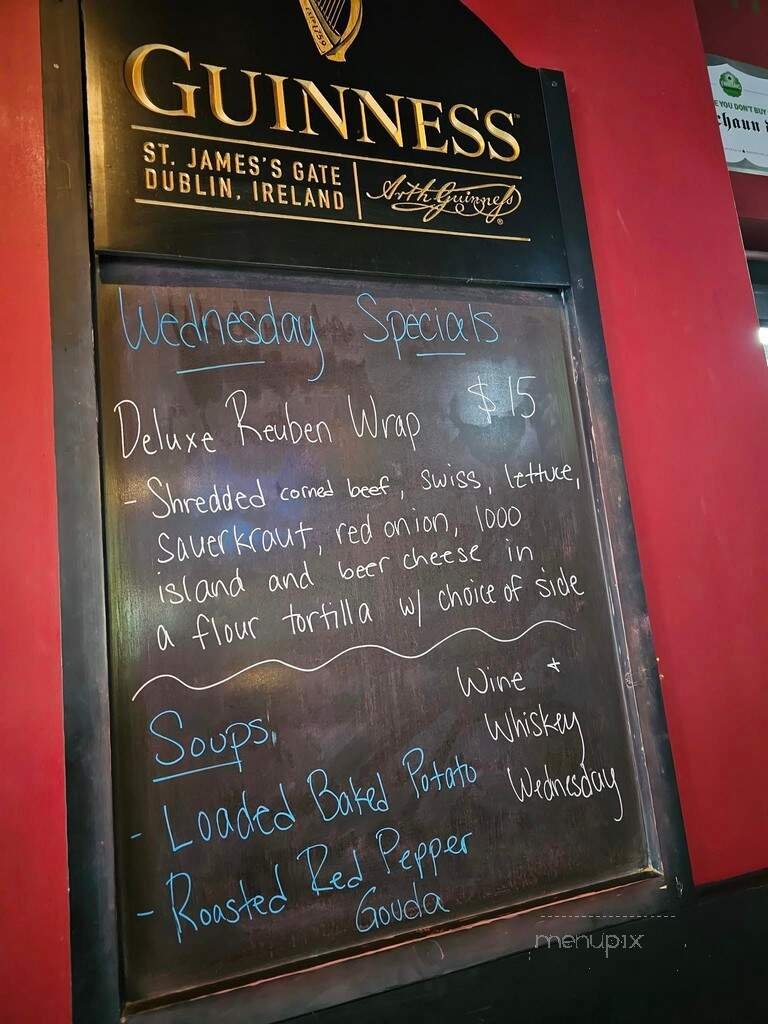 EST.D 1759
GUINNESS™
ST. JAMES'S GATE
DUBLIN, IRELAND
Arth Guinness®
Wednesday Specials
Deluxe Reuben Wrap $15
- Shredded corned beef, swiss, lettuce,
sauerkraut, red onion, 1000
island and beer cheese in
a flour tortilla w/ choice of side
Soups:
- Loaded Baked Potato
- Roasted Red Pepper
Gouda
Wine +
Whiskey
Wednesday
YOU DON'T BUY
menupix